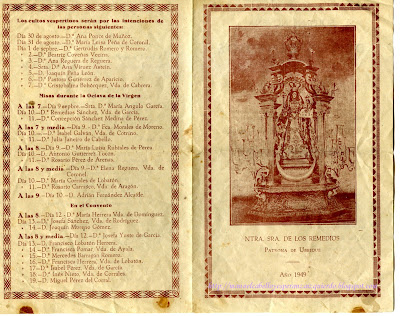 Los cultos vespertinos serán por las intenciones de
las personas siguientes:
Día 30 de agosto—D.ª Ana Ponce de Muñoz.
Día 31 de agosto—D.ª María Luisa Peña de Coñard.
Día 1 de sepbre.—D.ª Gertrudis Romero y Romero.
» 2—D.ª Beatriz Coveñas Vecina.
» 3—D.ª Ana Reguera de Reguera.
» 4—Srta. D.ª Ana Vivas
» 5—D. Joaquín Peña León.
» 6—D.ª Pastora Gutiérrez de Aparicio.
» 7—D.ª Cristobalina Bohórquez, Vda. de Cabezas.
Misas durante la Octava de la Virgen
A las 7—Día 9 sepbre.—Srta. D.ª María Angula García.
Día 10.—D.ª Remedios Sánchez, Vda. de García.
» 11.—D.ª Concepción Sánchez Medina de Pérez.
A las 7 y media—Día 9.—D.ª Fca. Morales de Moreno.
Día 10.—D.ª Isabel Galván, Vda. de Corrales.
» 11.—D.ª Julia Janeiro de Cabello.
A las 8—Día 9.—D.ª María Luisa Rubiales de Pérez
Día 10.—D. Antonio Gutiérrez
» 11.—D.ª Rosario Pérez de Arenas.
A las 8 y media—Día 9.—D.ª Elena Reguera, Vda. de
Coronel.
Día 10.—D.ª María Corrales de Lobatón.
» 11.—D.ª Rosario Carrasco, Vda. de Aragón.
A las 9—Día 10.—D. Adrián Fernández Alcalde.
En el Convento
A las 8—Día 12.—D.ª María Herrera Vda. de Domínguez.
Día 13.—D.ª Josefa Sánchez, Vda. de Rodríguez.
» 14.—D. Joaquín Moreno Gómez.
A las 8 y media—Día 12.—D.ª Josefa Yuste de García.
Día 13.—D. Francisco Lobatón Herrera.
» 14.—D.ª Francisca Pomar, Vda. de Ayala.
» 15.—D.ª Mercedes Barragán Romero.
» 16.—D.ª Francisca Herrera, Vda. de Lobatón.
» 17.—D.ª Isabel Pérez, Vda. de García.
» 18.—D.ª Inés Nieto, Vda. de Corrales.
» 19.—D. Miguel Pérez del Corral.
NTRA. SRA. DE LOS REMEDIOS
Patrona de Ubrique
Año 1949